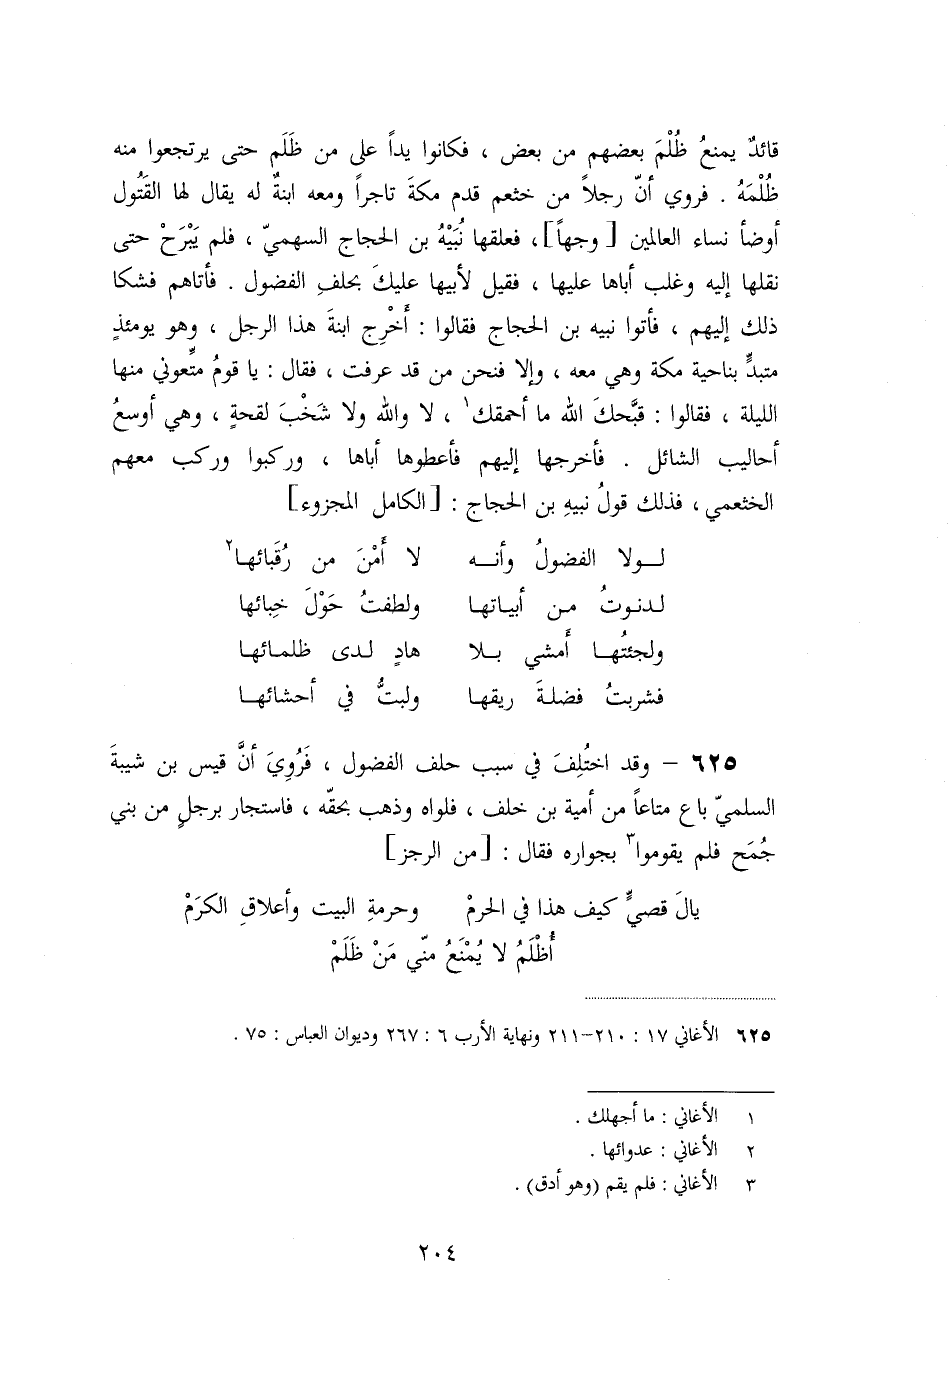 قائدٌ يمنعُ ظُلْمَ بعضهم من بعض ، فكانوا يداً على من ظَلَم حتى يرتجعوا منه
ظُلْمَهُ . فروي أنّ رجلاً من خثعم قدم مكةَ تاجراً ومعه ابنةٌ له يقال لها القَتُول
أوضأ نساء العالمين [ وجهاً ] ، فعلقها نُبَيْهُ بن الحجاج السهميّ ، فلم يَبْرَحْ حتى
نقلها إليه وغلب أباها عليها ، فقيل لأبيها عليكَ بحلفِ الفضول . فأتاهم فشكا
ذلك إليهم ، فأتوا نبيه بن الحجاج فقالوا : أَخْرِج ابنةَ هذا الرجل ، وهو يومئذٍ
متبدٍّ بناحية مكة وهي معه ، وإلا فنحن من قد عرفت ، فقال : يا قومُ متِّعوني منها
الليلة ، فقالوا : قبَّحكَ الله ما أحمقك١ ، لا والله ولا شَخْبَ لقحةٍ ، وهي أوسعُ
أحاليب الشائل . فأخرجها إليهم فأعطوها أباها ، وركبوا وركب معهم
الخثعمي ، فذلك قولُ نبيهِ بن الحجاج : [ الكامل المجزوء ]
لـولا الفضولُ وأنـه لا أَمْنَ من رُقَبائهـا٢
لدنـوتُ مـن أبياتهـا ولطفتُ حَوْلَ خِبائها
ولجئتُهـا أَمشي بـلا هادٍ لـدى ظلمائهـا
فشربتُ فضلـةَ ريقهـا ولبتُّ في أحشائهـا
٦٢٥ – وقد اختُلِفَ في سبب حلف الفضول ، فَرُوِيَ أنَّ قيس بن شيبةَ
السلميّ باع متاعاً من أمية بن خلف ، فلواه وذهب بحقّه ، فاستجار برجلٍ من بني
جُمَح فلم يقوموا٣ بجواره فقال : [ من الرجز ]
يالَ قصيٍّ كيف هذا في الحرمْ وحرمةِ البيت وأعلاقِ الكرَمْ
أُظْلَمُ لا يُمْنَعُ منّي مَنْ ظَلَمْ
٦٢٥ الأغاني ١٧ : ٢١٠–٢١١ ونهاية الأرب ٦ : ٢٦٧ وديوان العباس : ٧٥ .
١ الأغاني : ما أجهلك .
٢ الأغاني : عدوائها .
٣ الأغاني : فلم يقم (وهو أدق) .
٢٠٤